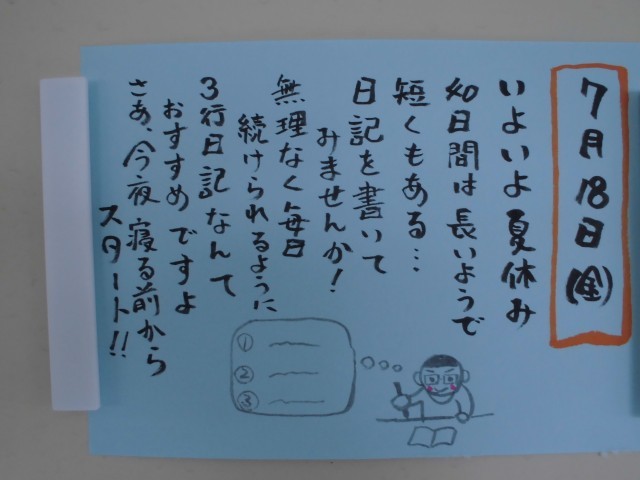 7月18日(金)
いよいよ夏休み
40日間は長いようで
短くもある…
日記を書いて
みませんか!
無理なく毎日
続けられるように
3行日記なんて
おすすめですよ
さあ、今夜寝る前から
スタート!!
①
②
③